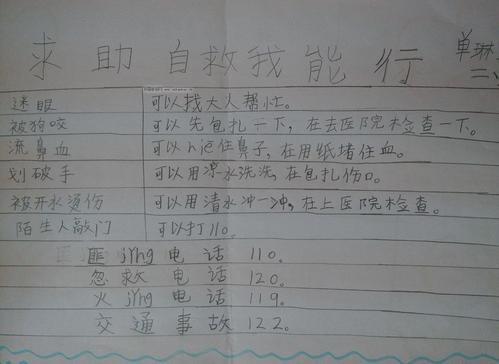 求助自救我能行 单琳
迷眼 可以找大人帮忙。
被狗咬 可以先包扎一下,在去医院检查一下。
流鼻血 可以nie住鼻子,在用纸堵住血。
划破手 可以用凉水洗洗,在包扎伤口。
被开水烫伤 可以用清水冲一冲,在上医院检查。
陌生人敲门 可以打110。
匪 jǐng 电话 110。
忽救电话 120。
火 jǐng 电话 119。
交通事故 122。